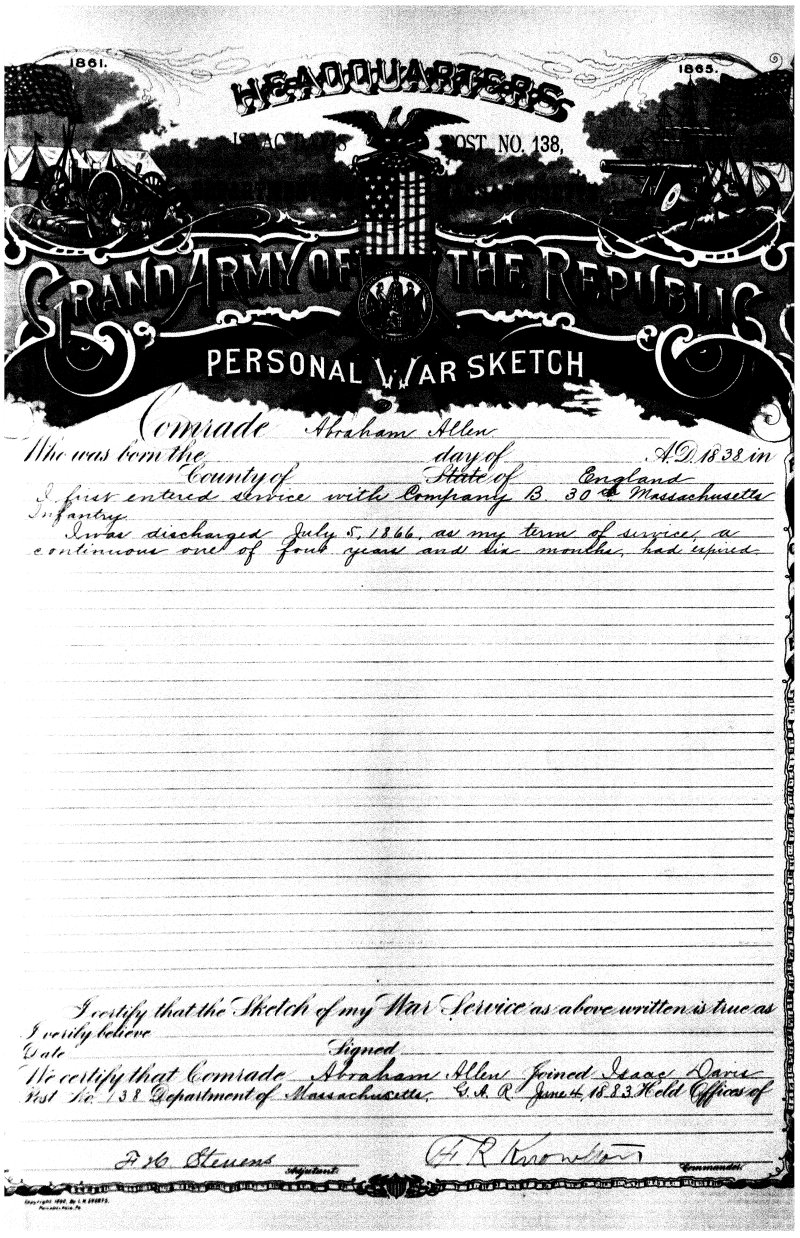 1861.
1865.
HEADQUARTERS
ISAAC DAVIS POST NO. 138,
GRAND ARMY OF THE REPUBLIC
PERSONAL WAR SKETCH
Comrade Abraham Allen
Who was born the day of A.D. 1838 in
County of State of England
I first entered service with Company B. 30th Massachusetts
Infantry
I was discharged July 5, 1866, as my term of service, a
continuous one of four years and six months, had expired.
I certify that the Sketch of my War Service as above written is true as
I verily believe
Date Signed
We certify that Comrade Abraham Allen Joined Isaac Davis
Post No. 138 Department of Massachusetts, G.A.R. June 4, 1883. Held Offices of
F H Stevens Adjutant. F R Knowlton Commander
Copyright 1890, By L.H. EVERTS,
PHILADELPHIA, PA